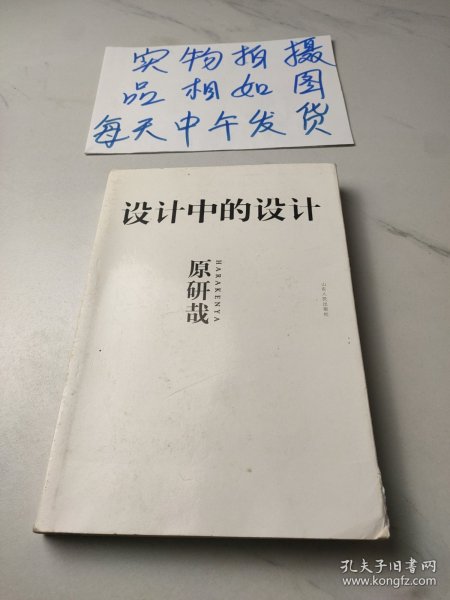 实物拍摄
品相如图
每天中午发货
设计中的设计
原研哉
HARAKENYA
山东人民出版社
孔夫子旧书网
www.kongfz.com